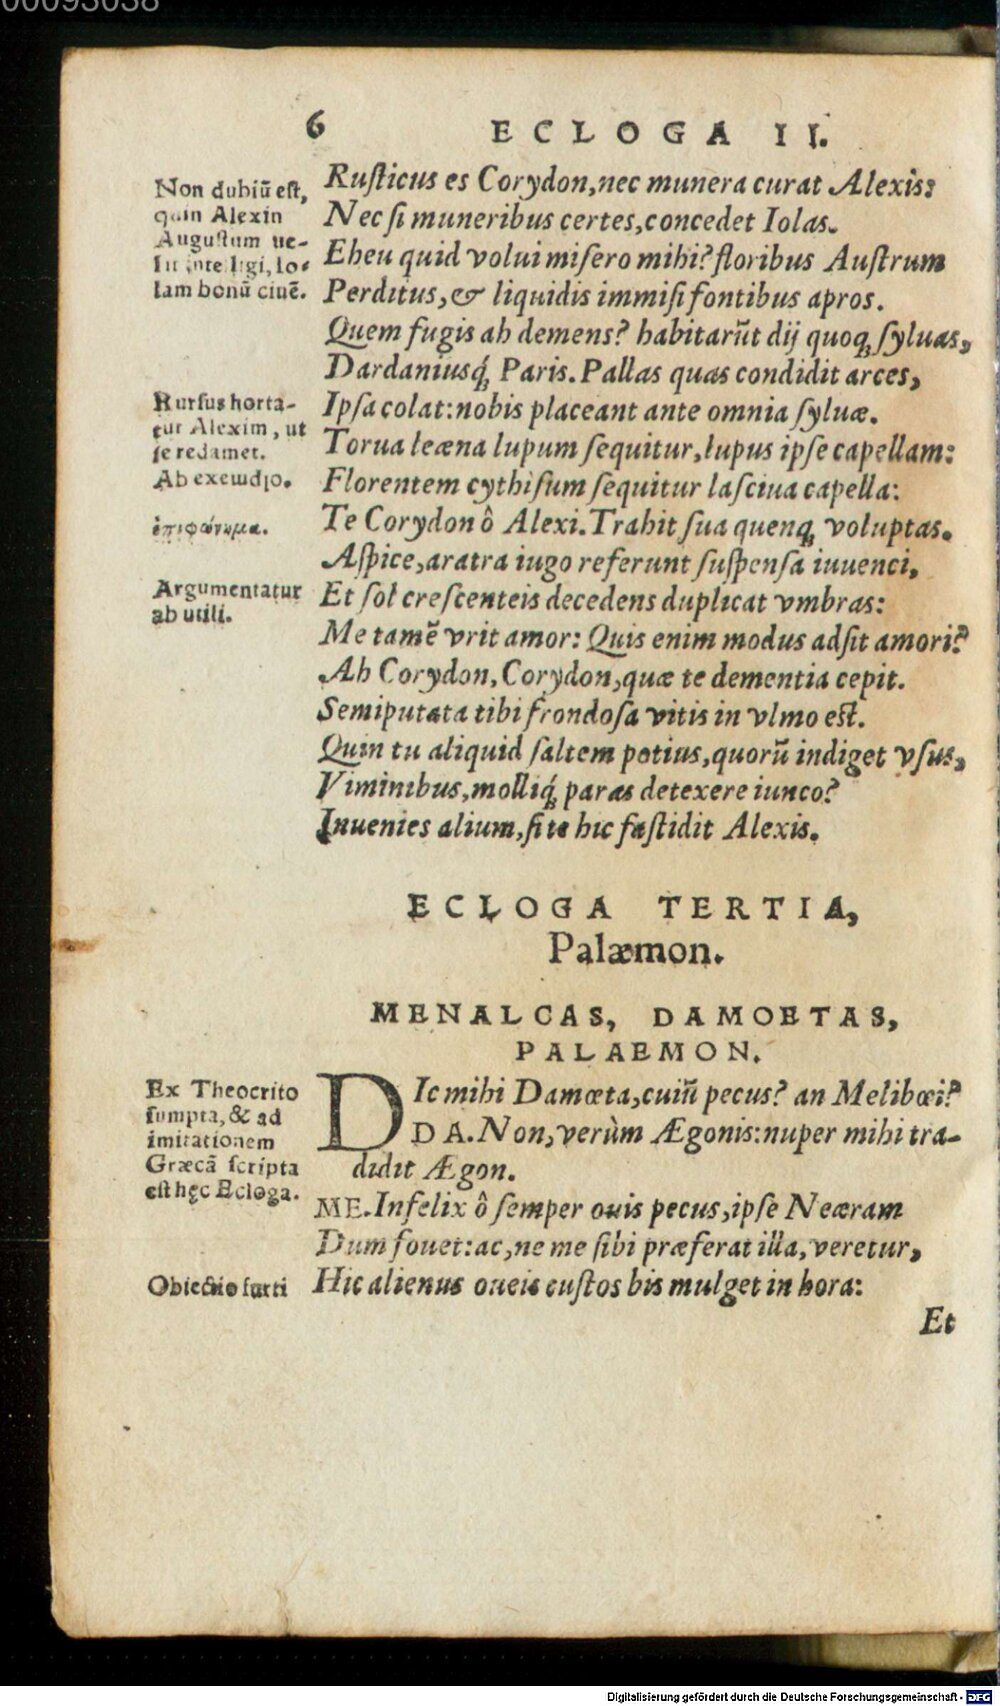 00093038
6 ECLOGA II.
Non dubiũ est,
quin Alexin
Augustum ue-
lit intelligi, Io-
lam bonũ ciuẽ.
Rusticus es Corydon, nec munera curat Alexis:
Nec si muneribus certes, concedet Iolas.
Eheu quid volui misero mihi? floribus Austrum
Perditus, & liquidis immisi fontibus apros.
Quem fugis ah demens? habitarũt dij quoq; syluas,
Dardaniusq́; Paris. Pallas quas condidit arces,
Rursus horta-
tur Alexim, ut
se redamet.
Ipsa colat: nobis placeant ante omnia syluæ.
Torua leæna lupum sequitur, lupus ipse capellam:
Ab exemplo.
Florentem cythisum sequitur lasciua capella:
ἐπιφώνημα.
Te Corydon ô Alexi. Trahit sua quenq; voluptas.
Aspice, aratra iugo referunt suspensa iuuenci,
Argumentatur
ab utili.
Et sol crescenteis decedens duplicat vmbras:
Me tamẽ vrit amor: Quis enim modus adsit amori?
Ah Corydon, Corydon, quæ te dementia cepit.
Semiputata tibi frondosa vitis in vlmo est.
Quin tu aliquid saltem potius, quorũ indiget vsus,
Viminibus, molliq́; paras detexere iunco?
Inuenies alium, si te hic fastidit Alexis.
ECLOGA TERTIA,
Palæmon.
MENALCAS, DAMOETAS,
PALAEMON.
Ex Theocrito
sumpta, & ad
imitationem
Græcã scripta
est hęc Ecloga.
DIc mihi Damœta, cuiũ pecus? an Melibœi?
DA. Non, verùm Ægonis: nuper mihi tra-
didit Ægon.
ME. Infelix ô semper ouis pecus, ipse Neæram
Dum fouet: ac, ne me sibi præferat illa, veretur,
Obiectio furti
Hic alienus oueis custos bis mulget in hora:
Et
Digitalisierung gefördert durch die Deutsche Forschungsgemeinschaft - DFG